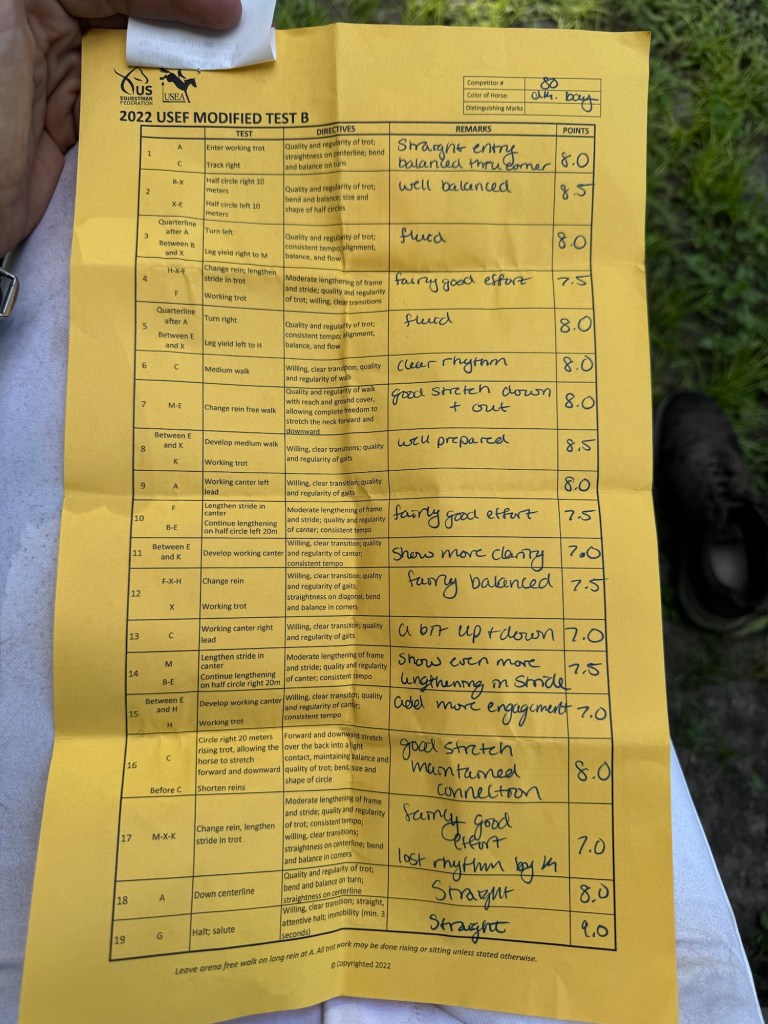 US
EQUESTRIAN
FEDERATION
USEA
Competitor # 80
Color of Horse: dk. bay
Distinguishing Marks
2022 USEF MODIFIED TEST B
TEST DIRECTIVES REMARKS POINTS
1 A Enter working trot
C Track right
Quality and regularity of trot;
straightness on centerline; bend
and balance on turn
Straight entry
balanced thru corner
8.0
2 B-X Half circle right 10
meters
X-E Half circle left 10
meters
Quality and regularity of trot;
bend and balance; size and
shape of half circles
well balanced
8.5
3 Quarterline
after A
Turn left
Between B
and X
Leg yield right to M
Quality and regularity of trot;
consistent tempo; alignment,
balance, and flow
fluid
8.0
4 H-X-F Change rein; lengthen
stride in trot
F Working trot
Moderate lengthening of frame
and stride; quality and regularity
of trot; willing, clear transitions
fairly good effort
7.5
5 Quarterline
after A
Turn right
Between E
and X
Leg yield left to H
Quality and regularity of trot;
consistent tempo; alignment,
balance, and flow
fluid
8.0
6 C Medium walk
Willing, clear transition; quality
and regularity of walk
clear rhythm
8.0
7 M-E Change rein free walk
Quality and regularity of walk
with reach and ground cover,
allowing complete freedom to
stretch the neck forward and
downward
good stretch down
+ out
8.0
8 Between E
and K
Develop medium walk
K Working trot
Willing, clear transitions; quality
and regularity of gaits
well prepared
8.5
9 A Working canter left
lead
Willing, clear transition; quality
and regularity of gaits
8.0
10 F Lengthen stride in
canter
B-E Continue lengthening
on half circle left 20m
Moderate lengthening of frame
and stride; quality and regularity
of canter; consistent tempo
fairly good effort
7.5
11 Between E
and K
Develop working canter
Willing, clear transition; quality
and regularity of canter;
consistent tempo
show more clarity
7.0
12 F-X-H Change rein
X Working trot
Willing, clear transition; quality
and regularity of gaits;
straightness on diagonal; bend
and balance in corners
fairly balanced
7.5
13 C Working canter right
lead
Willing, clear transition; quality
and regularity of gaits
a bit up + down
7.0
14 M Lengthen stride in
canter
B-E Continue lengthening
on half circle right 20m
Moderate lengthening of frame
and stride; quality and regularity
of canter; consistent tempo
show even more
lengthening in stride
7.5
15 Between E
and H
Develop working canter
H Working trot
Willing, clear transition; quality
and regularity of canter;
consistent tempo
add more engagement
7.0
16 C Circle right 20 meters
rising trot, allowing the
horse to stretch
forward and downward
Before C Shorten reins
Forward and downward stretch
over the back into a light
contact, maintaining balance and
quality of trot; bend; size and
shape of circle
good stretch
maintained
connection
8.0
17 M-X-K Change rein, lengthen
stride in trot
Moderate lengthening of frame
and stride; quality and regularity
of trot; consistent tempo;
willing, clear transitions;
straightness on centerline; bend
and balance in corners
fairly good
effort
lost rhythm by K
7.0
18 A Down centerline
Quality and regularity of trot;
bend and balance on turn;
straightness on centerline
Straight
8.0
19 G Halt; salute
Willing, clear transition; straight,
attentive halt; immobility (min. 3
seconds)
Straight
9.0
Leave arena free walk on long rein at A. All trot work may be done rising or sitting unless stated otherwise.
© Copyrighted 2022